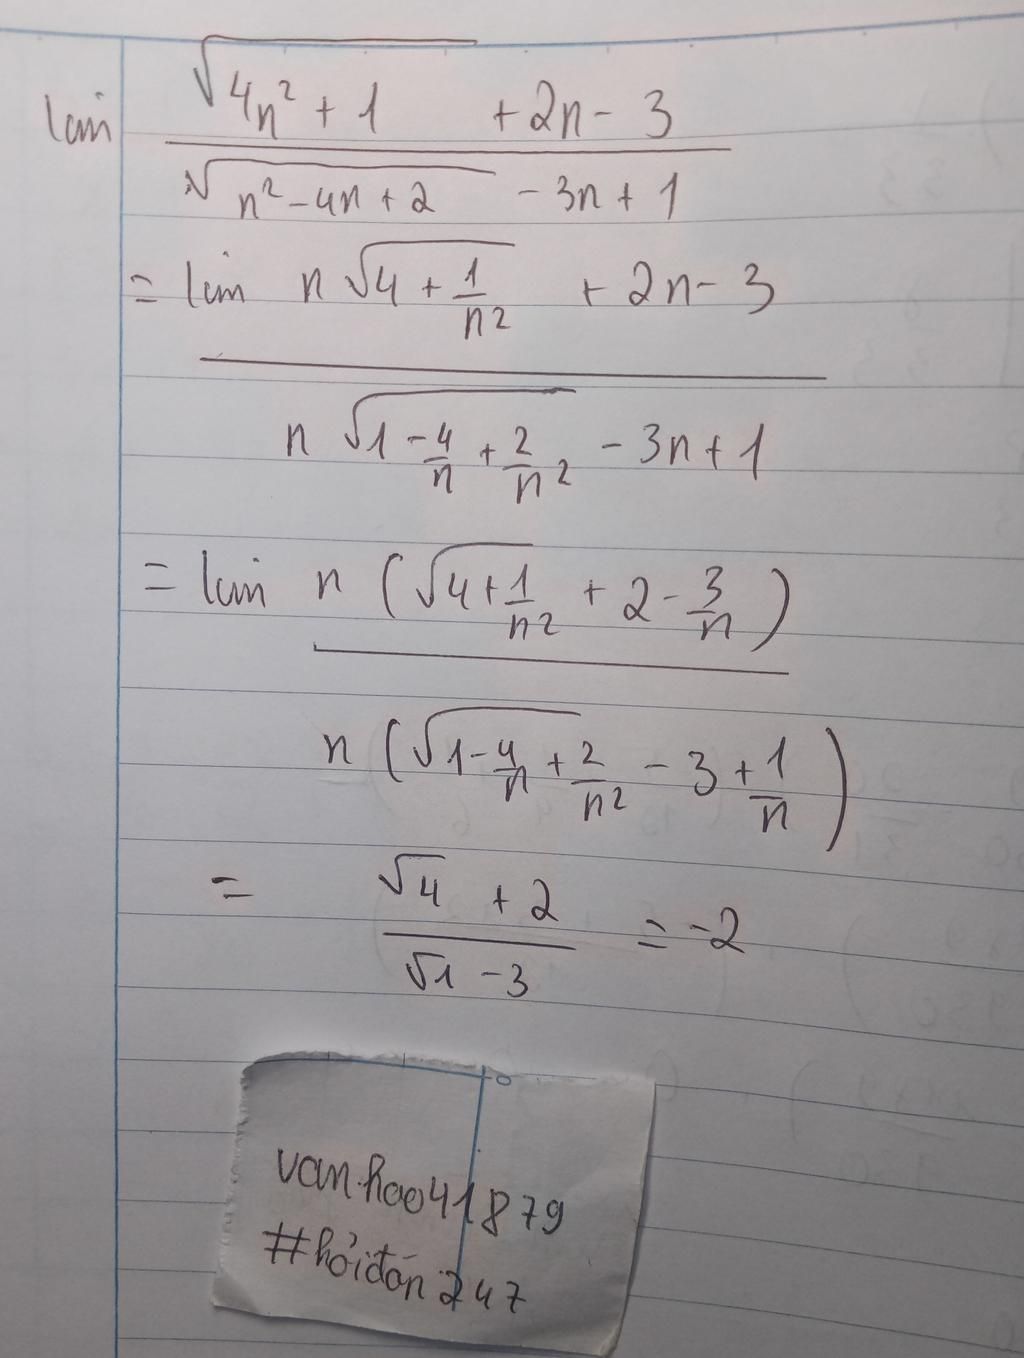 lim (√(4n² + 1) + 2n - 3) / (√(n² - 4n + 2) - 3n + 1)
= lim (n √(4 + 1/n²) + 2n - 3) / (n √(1 - 4/n + 2/n²) - 3n + 1)
= lim n (√(4 + 1/n²) + 2 - 3/n) / n (√(1 - 4/n + 2/n²) - 3 + 1/n)
= (√4 + 2) / (√1 - 3) = -2
vanhao41879
#hỏiđán247